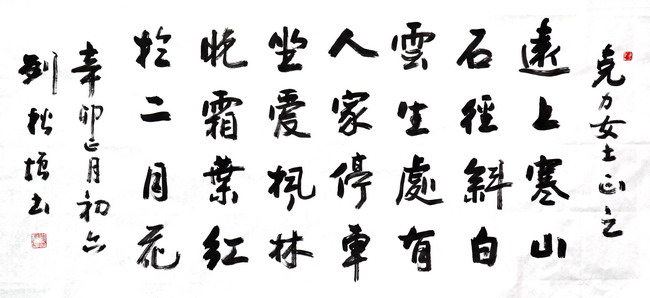 力女士正之
遠上寒山
石徑斜白
雲生處有
人家停車
坐愛楓林
晚霜葉紅
於二月花
辛卯正月初六
劉秋書